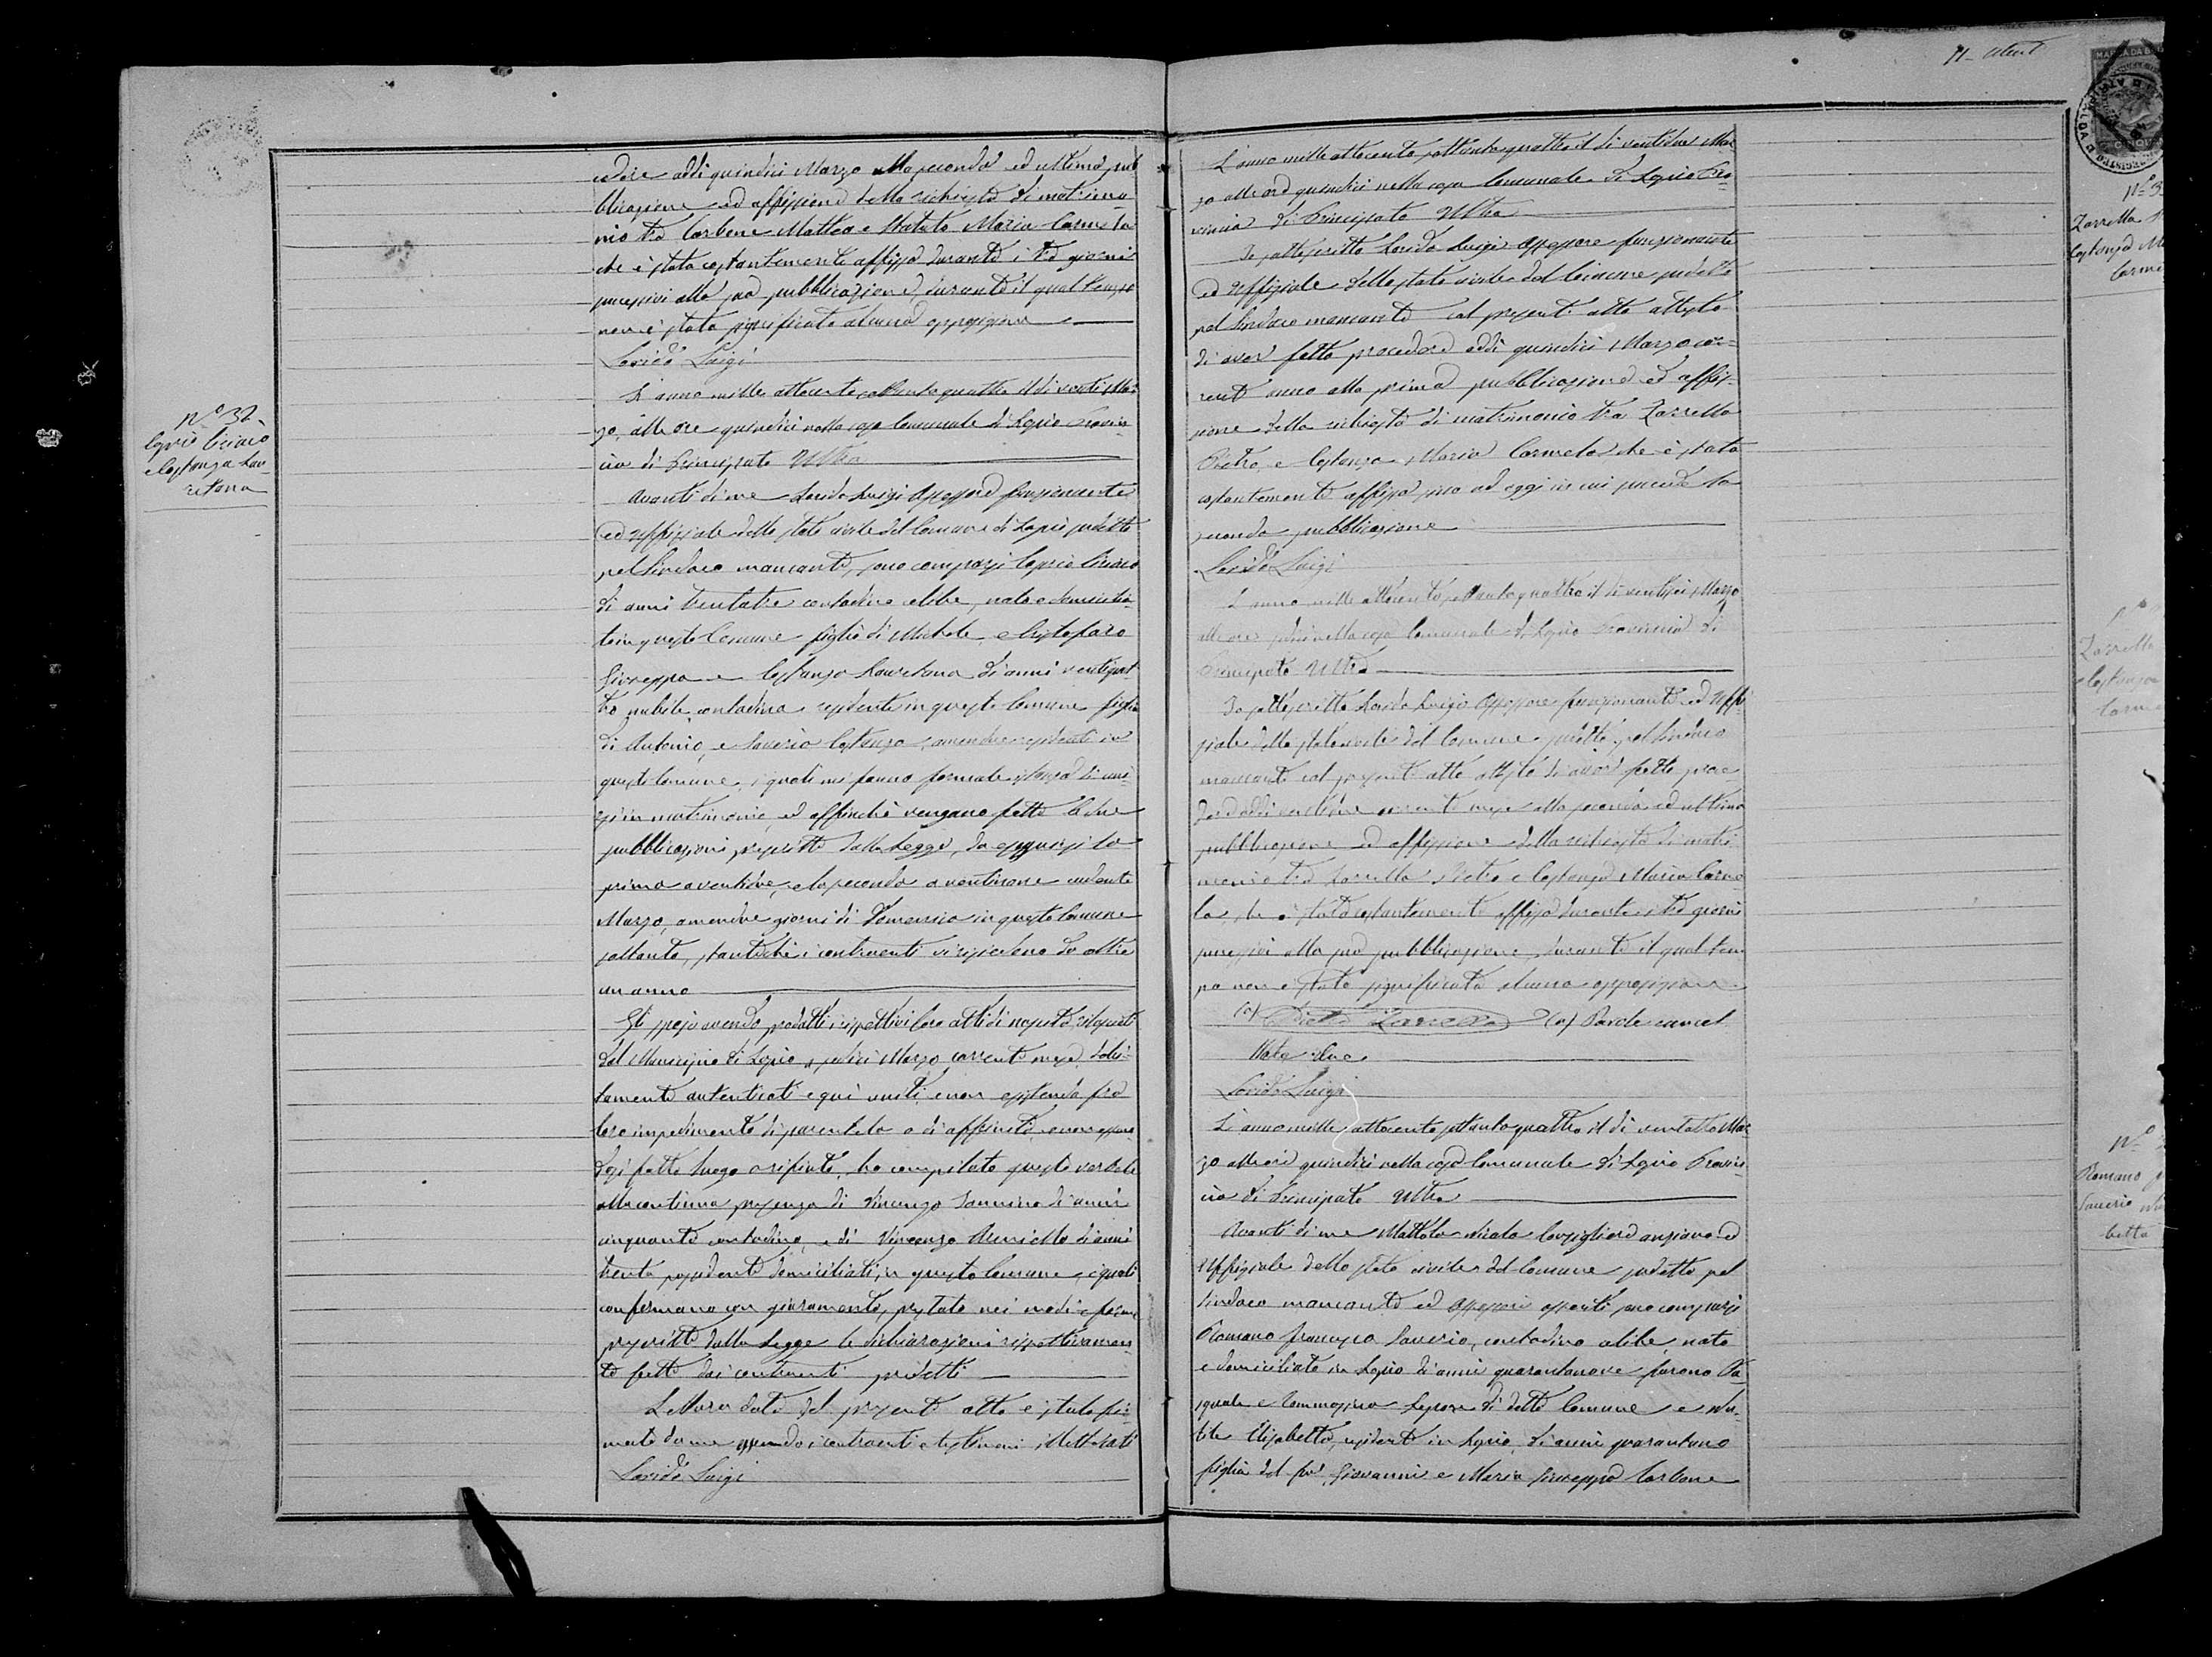 cedere addì quindici Marzo alla seconda ed ultima pub
blicazione ed affissione della richiesta di matrimo-
nio tra Carbone Mattea e Statuto Maria Carmela
che è stata costantemente affissa durante i tre giorni
successivi alla sua pubblicazione, durante il qual tempo
non è stata significata alcuna opposizione
Lorido Luigi
N.° 32
Coprio Ciriaco
e Costanza Lau-
retana
L'anno mille ottocento settantaquattro il dì venti Mar
zo, alle ore quindici nella casa Comunale di Lapio Provin-
cia di Principato Ultra
Avanti di me Lorido Luigi Assessore funzionante
ed Uffiziale dello stato civile del Comune di Lapio sudetto
pel Sindaco mancante, sono comparsi Coprio Ciriaco
di anni trentatre contadino celibe, nato e domicilia-
to in questo Comune figlio di Michele e Cristofaro
Giuseppa e Costanza Lauretana di anni ventiquat-
tro nubile contadina residente in questo Comune figlia
di Antonio, e Saveria Costanzo, amendue residenti in
questo Comune, i quali mi fanno formale istanza di unir
si in matrimonio, ed affinchè vengano fatte le due
pubblicazioni prescritte dalla Legge, da eseguirsi la
prima a ventidue, e la seconda a ventinove cadente
Marzo, amendue giorni di Domenica in questo Comune
soltanto, stantechè i contraenti vi risiedono da oltre
un anno
Gli sposi avendo prodotti i rispettivi loro atti di nascita rilasciati
dal Municipio di Lapio a sedici Marzo corrente mese, debi-
tamente autenticati e quì uniti, e non esistendo fra
loro impedimento di parentela o di affinità e non essen-
dosi fatto luogo a rifiuto, ho compilato questo verbale
alla continua presenza di Vincenzo Iannino di anni
cinquanta contadino, e di Vincenzo Meniello di anni
trenta possidente domiciliati in questo Comune, i quali
confermano con giuramento, prestato nei modi e forme
prescritte dalla Legge le dichiarazioni rispettivamen-
te fatte dai contraenti predetti
Lettura data del presente atto è stato fir-
mato da me essendo i contraenti e testimoni illetterati
Lorido Luigi
L'anno mille ottocento settantaquattro il dì ventidue Mar
zo alle ore quindici nella casa Comunale di Lapio Pro-
vincia di Principato Ultra
Io sottoscritto Lorido Luigi Assessore funzionante
ed Uffiziale dello stato civile del Comune sudetto
pel Sindaco mancante col presente atto attesto
di aver fatto procedere addì quindici Marzo cor-
rente anno alla prima pubblicazione ed affis-
sione della richiesta di matrimonio tra Zarrella
Pietro, e Costanzo Maria Carmela che è stata
costantemente affissa sino ad oggi in cui succede la
seconda pubblicazione
Lorido Luigi
L'anno mille ottocento settantaquattro il dì ventisei Marzo
alle ore sedici nella casa Comunale di Lapio Provincia di
Principato Ultra
Io sottoscritto Lorido Luigi Assessore funzionante ed Uffi-
ziale dello stato civile del Comune sudetto pel Sindaco
mancante col presente atto attesto di aver fatto proce
dere addì ventidue corrente mese alla seconda ed ultima
pubblicazione ed affissione della richiesta di matri
monio tra Zarrella Pietro e Costanza Maria Carme
la, che è stata costantemente affissa durante i tre giorni
successivi alla sua pubblicazione, durante il qual tem
po non è stata significata alcuna opposizione
(a) Pietro Zarrella (a) Parole cancel
late due
Lorido Luigi
L'anno mille ottocento settantaquattro il dì ventotto Mar
zo alle ore quindici nella casa Comunale di Lapio Provin
cia di Principato Ultra
Avanti di me Mattola Nicola Consigliere anziano ed
Uffiziale dello stato civile del Comune sudetto pel
Sindaco mancante ed Assessori assenti sono comparsi
Romano Francesco Saverio, contadino celibe, nato
e domiciliato in Lapio di anni quarantanove furono Pa
squale e Tommasina Lepore di detto Comune e
Elisabetta, residente in Lapio, di anni quarantuno
figlia del fu Giovanni e Maria Giuseppa Carbone
N.° 3
Zarrella
Costanza M
Carme
Zarrella
e Costanza
Carme
N.°
Romano
Saverio
betta